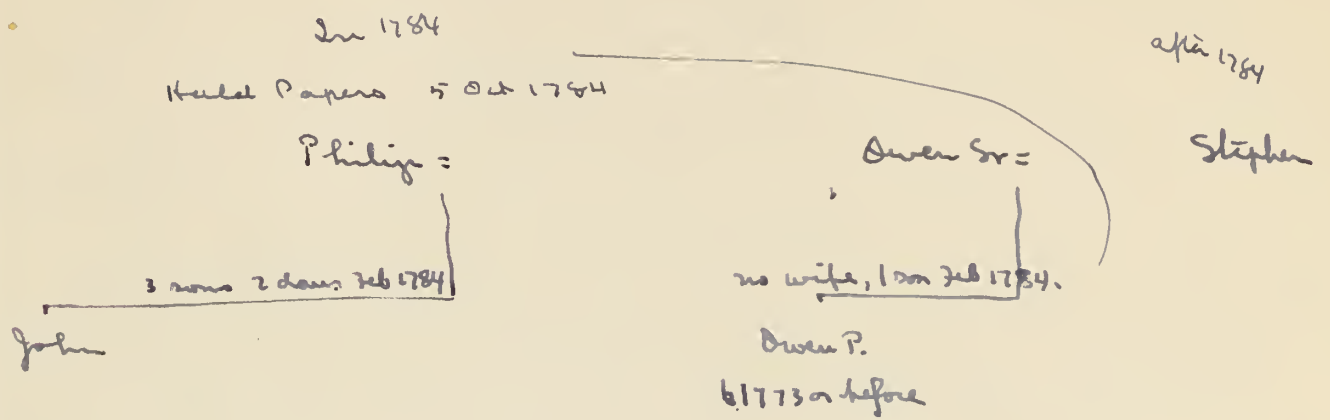 In 1784
after 1784
Papers 5 Oct 1784
Philip =
Owen Sr =
Stephen
3 sons 2 daus. Feb 1784
no wife, 1 son Feb 1784.
John
Owen P.
b 1773 or before